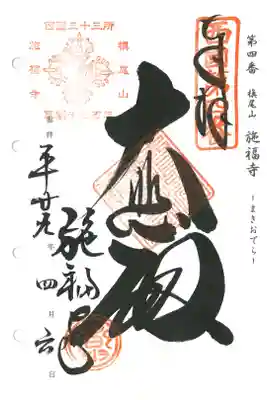 第四番 槇尾山 施福寺 ーまきおでらー
奉拝
大悲殿
西国三十三所
槇尾山
施福寺
奉拝
施福寺
平廿九年四月六日